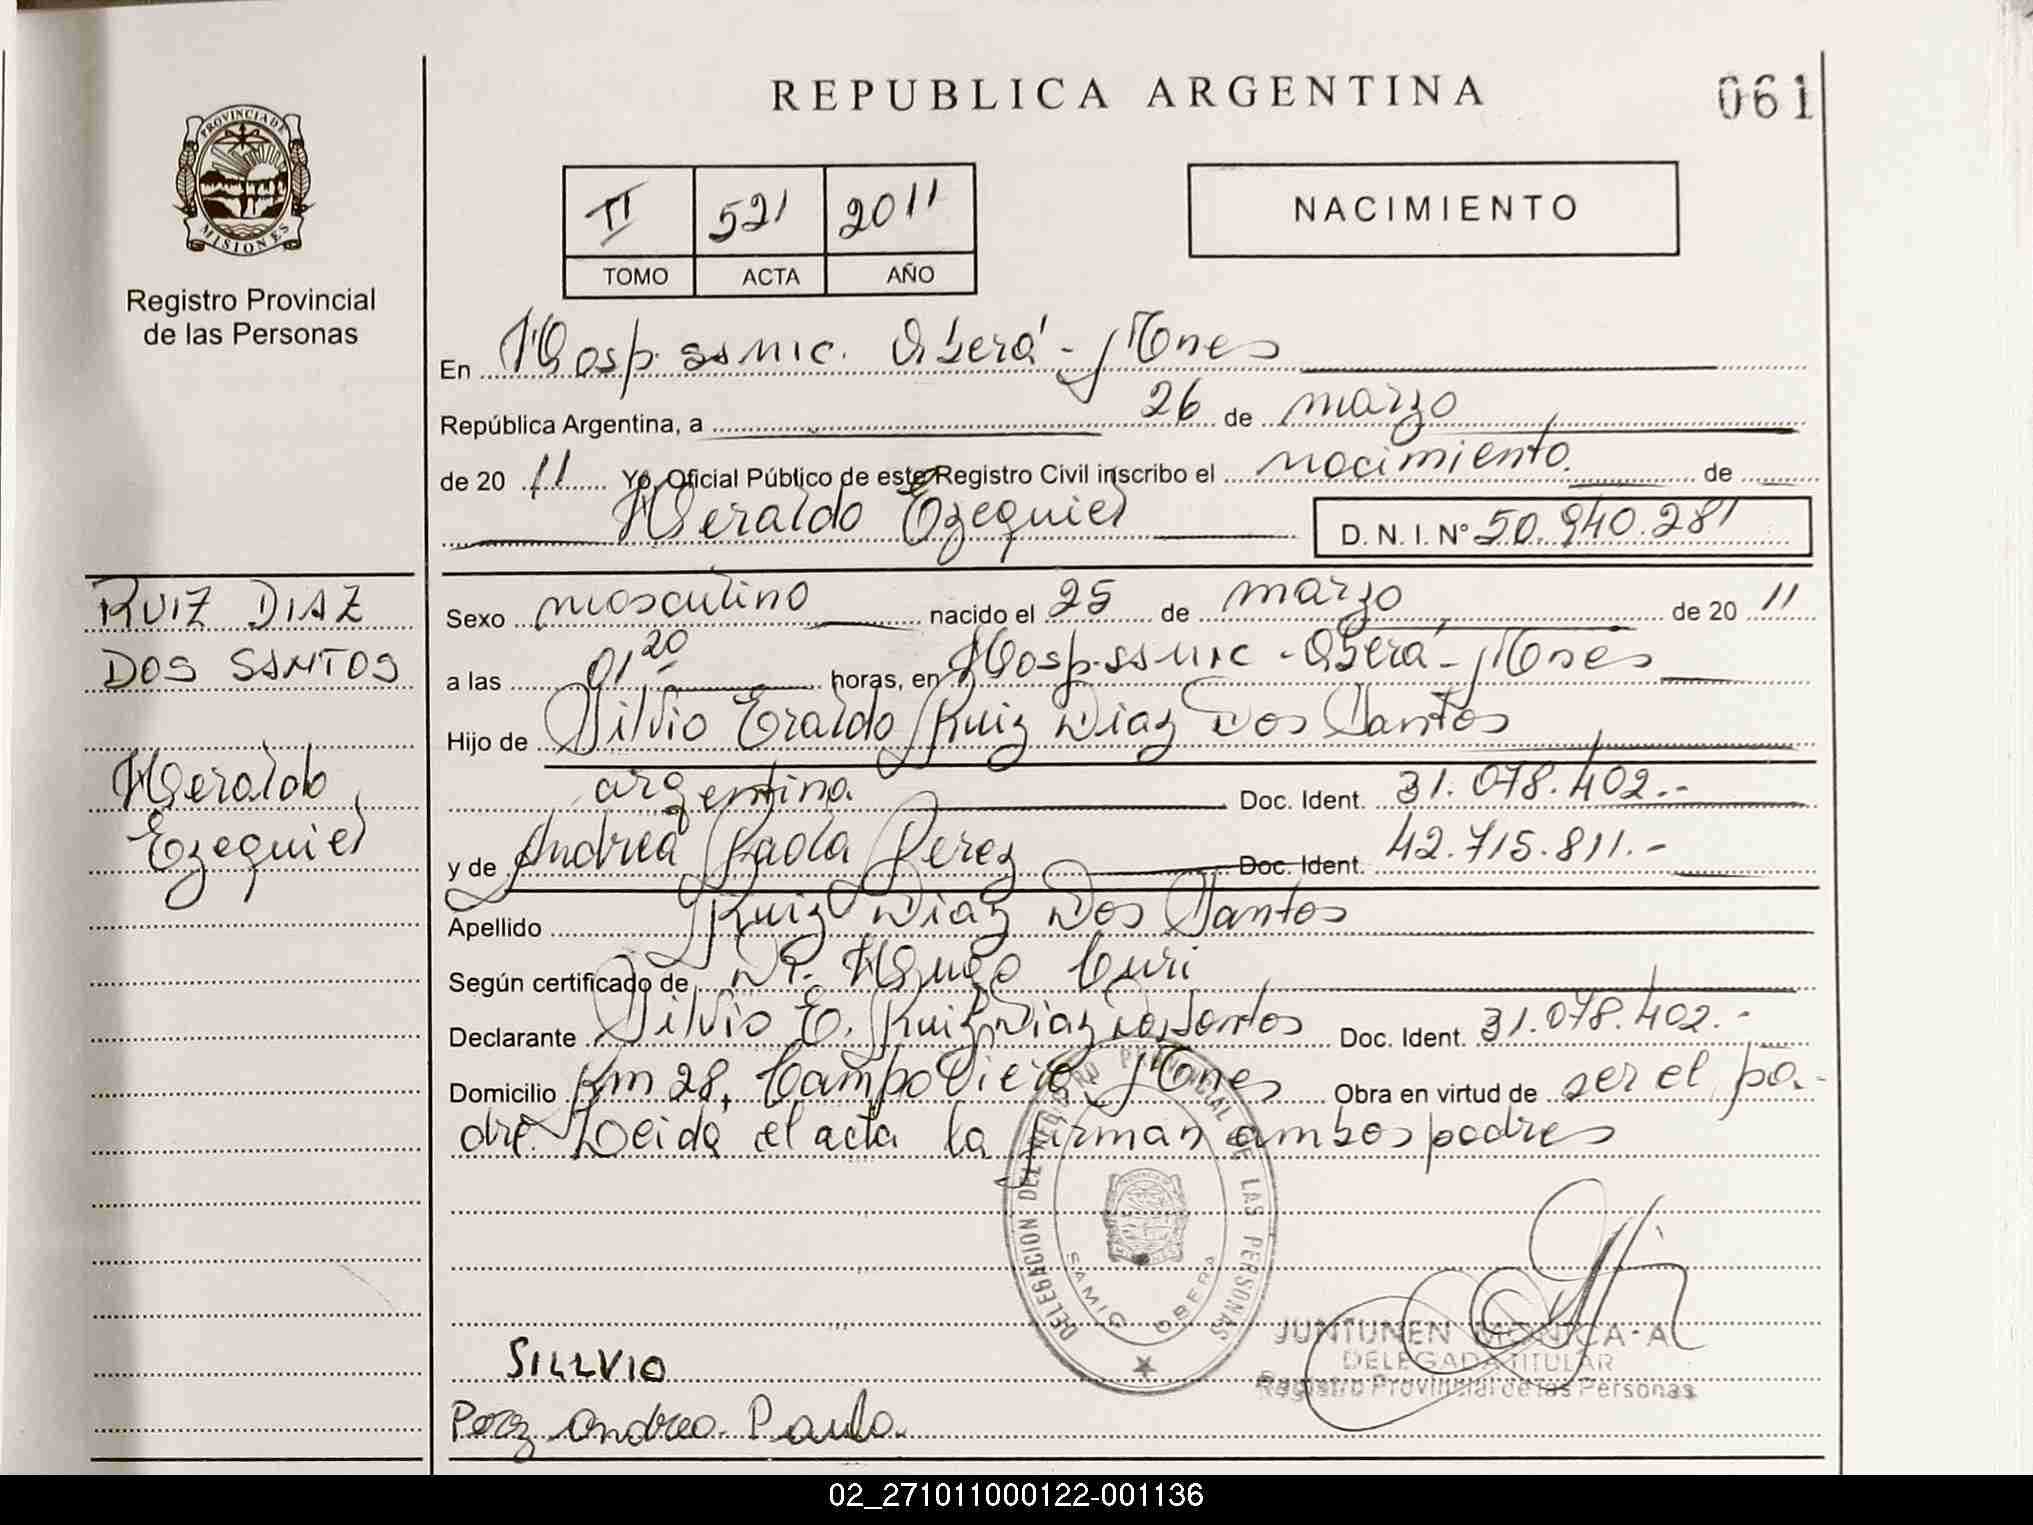 REPUBLICA ARGENTINA
061
PROVINCIA DE MISIONES
Registro Provincial
de las Personas
II 521 2011
TOMO ACTA AÑO
NACIMIENTO
En Hosp. ssmic. Oberá - Mnes
República Argentina, a 26 de marzo
de 20 11 Yo, Oficial Público de este Registro Civil inscribo el nacimiento. de
Heraldo Ezequiel D. N. I. Nº 50.940.281
RUIZ DIAZ
DOS SANTOS
Heraldo
Ezequiel
Sexo masculino nacido el 25 de marzo de 20 11
a las 01 20 horas, en Hosp. ssmic - Oberá - Mnes
Hijo de Silvio Eraldo Ruiz Diaz Dos Santos
argentina. Doc. Ident. 31.078.402.-
y de Andrea Paola Perez Doc. Ident. 42.715.811.-
Apellido Ruiz Diaz Dos Santos
Según certificado de Dr. Hugo Curi
Declarante Silvio E. Ruiz Diaz Dos Santos Doc. Ident. 31.078.402.-
Domicilio Km 28, Campo Viera, Mnes Obra en virtud de ser el pa-
dre. Leida el acta la firman ambos padres
DELEGACION DEL REGISTRO PROVINCIAL DE LAS PERSONAS
SAMIC OBERA
JUNTUNEN MONICA - A
DELEGADA TITULAR
Registro Provincial de las Personas
SILLVIO
Perz Andrea Paula.
02_271011000122-001136